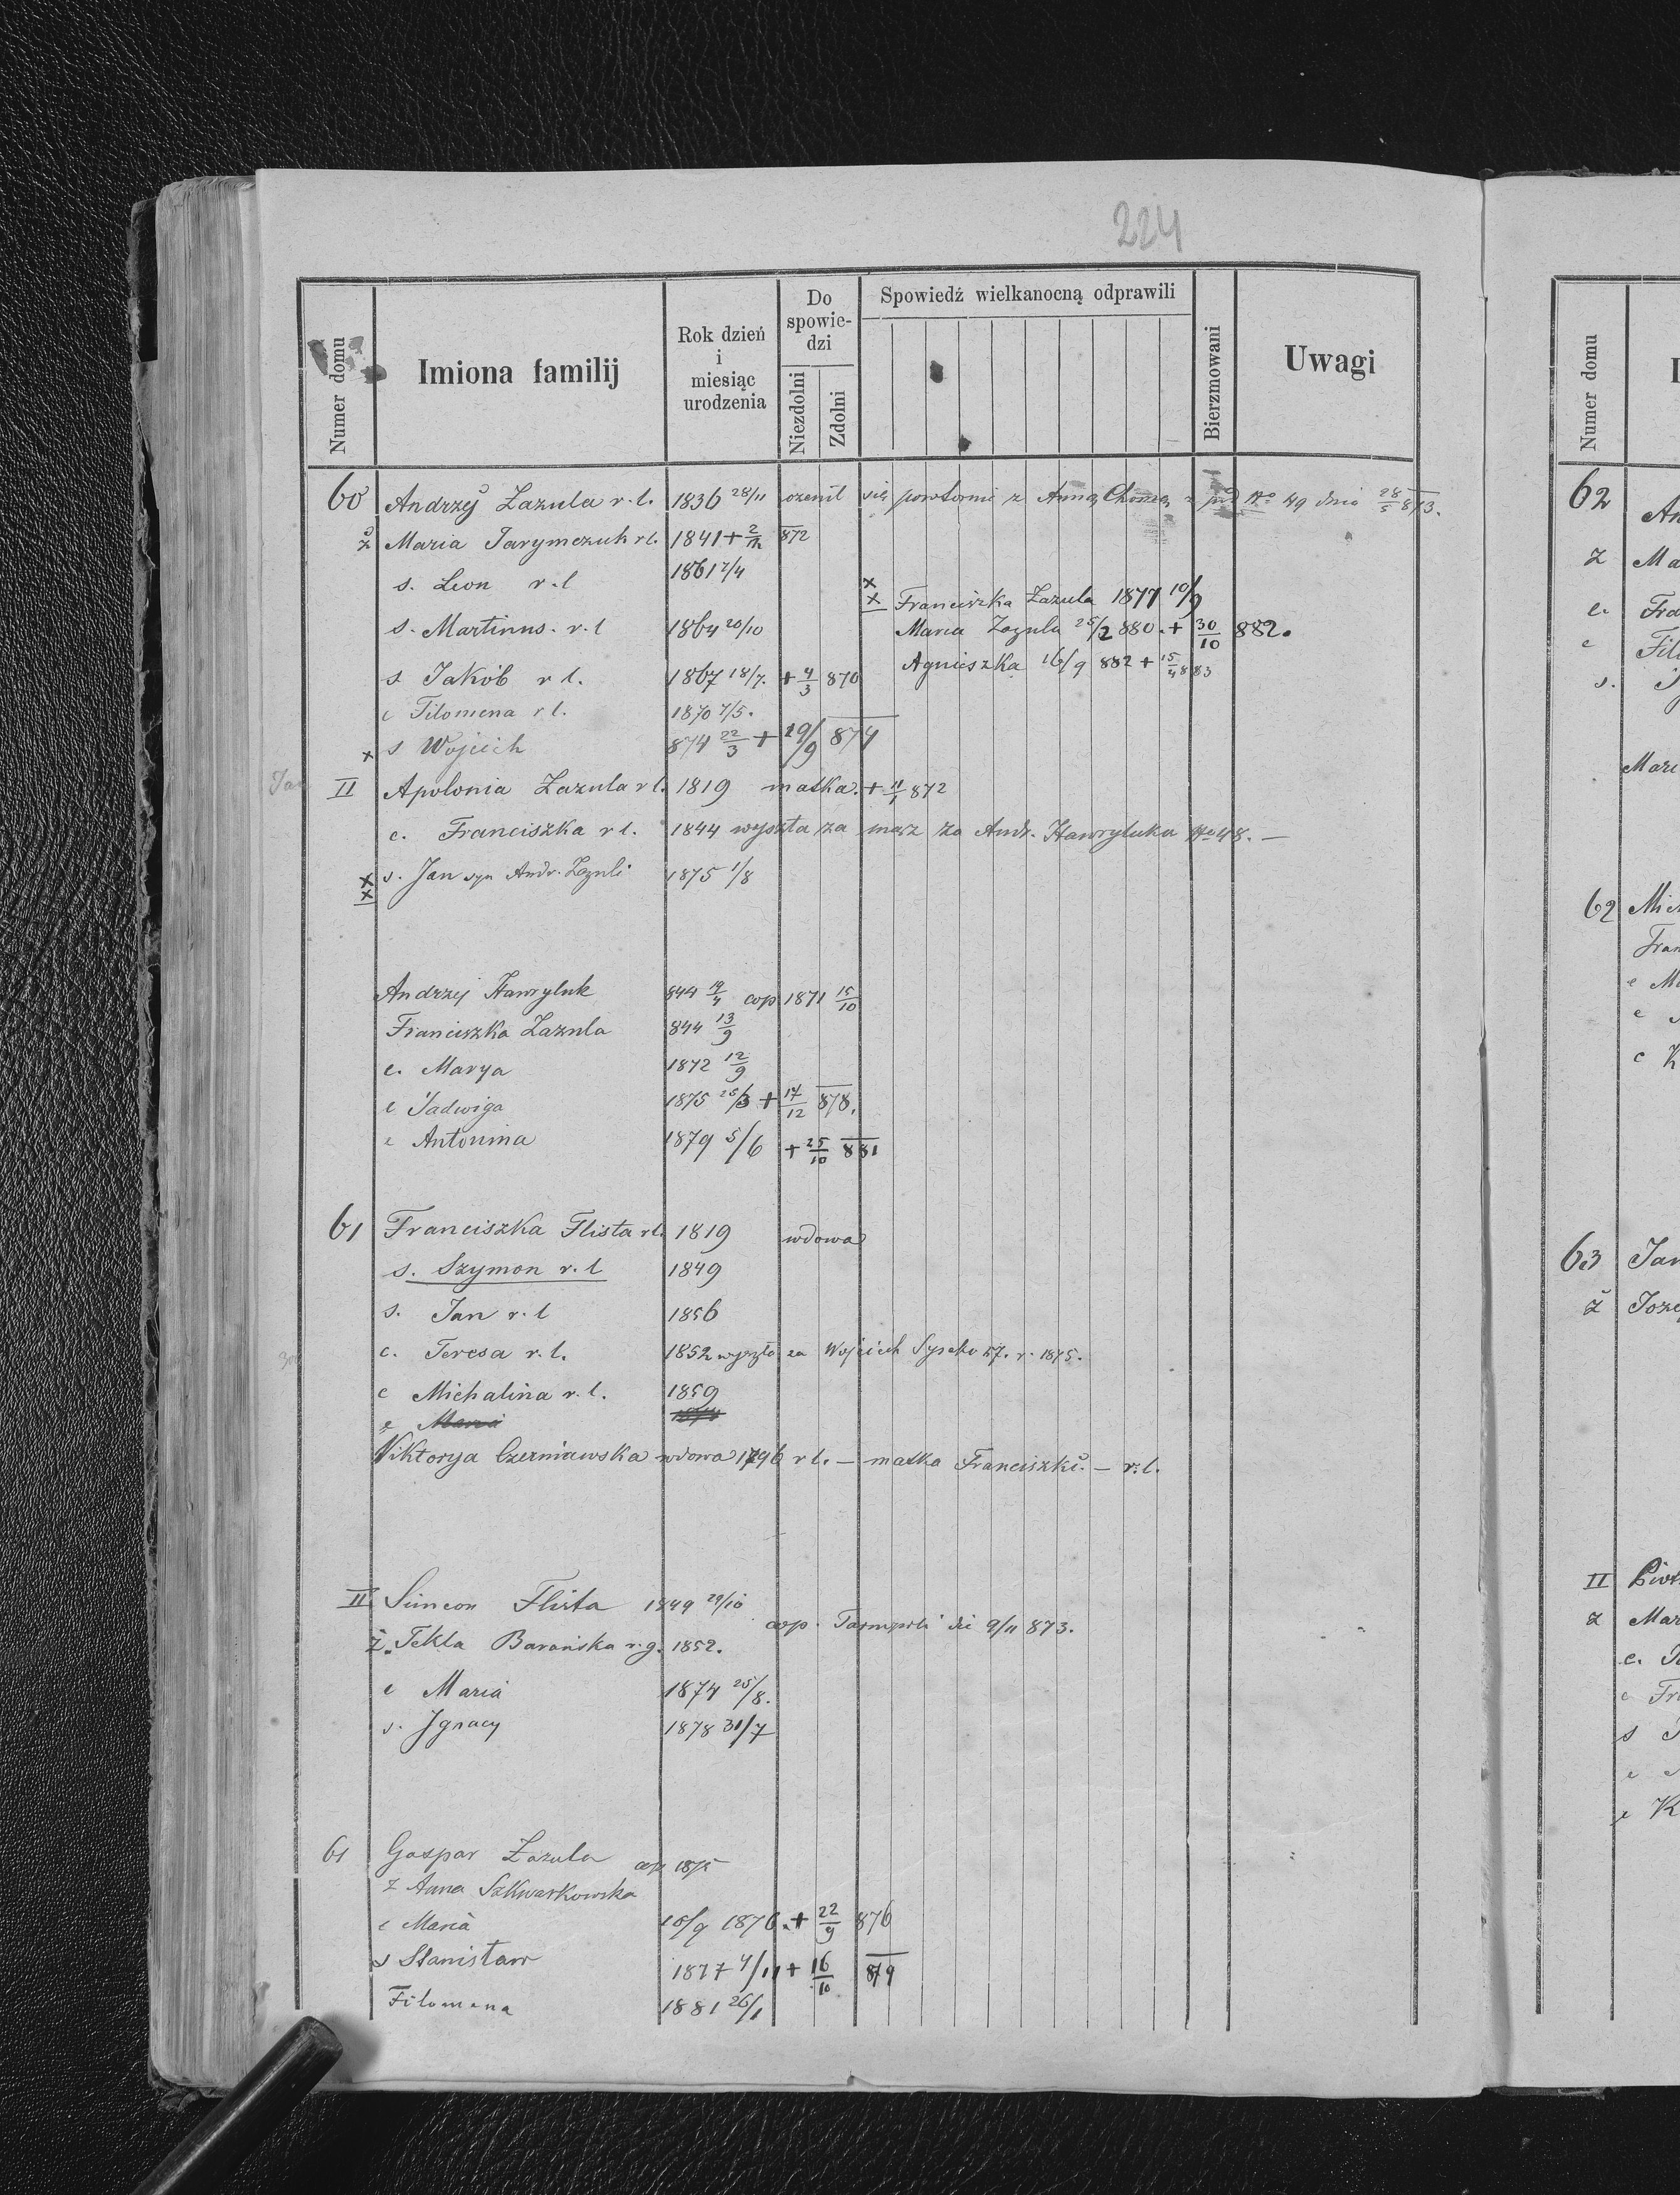 224
Numer domu
Imiona familij
Rok dzień i miesiąc urodzenia
Do spowiedzi
Niezdolni
Zdolni
Spowiedź wielkanocną odprawili
Bierzmowani
Uwagi
60 Andrzej Zazula r. l. 1836 28/11 ożenił się powtornie z Anną Chomą z pod No 49 dnia 28/5 873.
ż Maria Jarymczuk rl. 1841 + 2/12 872
s. Leon r. l 1861 2/4
x x Franciszka Zazula 1877 10/9
s. Martinus. r. l 1864 20/10
Maria Zazula 25/2 880. + 30/10 882.
Agnieszka 16/9 882 + 15/4 883
s Jakób r l. 1867 18/7. + 4/3 870
c Filomena r l. 1870 7/5.
x s Wojcich 874 22/3 + 29/9 874
II Apolonia Zazula r l. 1819 matka. + 11/1 872
c. Franciszka r l. 1844 wyszła za mąz za Andr. Hawryluka No 48. —
x x s. Jan syn Andr. Zazuli 1875 1/8
Andrzej Hawryluk 844 14/4 cop 1871 15/10
Franciszka Zazula 844 13/9
c. Marya 1872 12/9
c Jadwiga 1875 25/3 + 17/12 878.
c Antonina 1879 5/6 + 25/10 881
61 Franciszka Flista rl. 1819 wdowa
s. Szymon r. l 1849
s. Jan r. l 1856
c. Teresa r. l. 1852 wyszła za Wojcich 57. r. 1875.
c Michalina r. l. 1859
c Maria
Viktorya Czerniawska wdowa 1796 r l. — matka Franciszki. — r. l.
II Simeon Flista 1849 29/10
cop. 9/11 873.
ż. Tekla Barańska r. g. 1852.
c Maria 1874 25/8.
s. Jgnacy 1878 31/7
61 Gaspar Zazula cop 1875
ż Anna Szkwarkowska
c Maria 10/9 1876. + 22/9 876
s Stanisław 1877 4/11 + 16/10 879
Filomena 1881 26/1
62
62
63
II